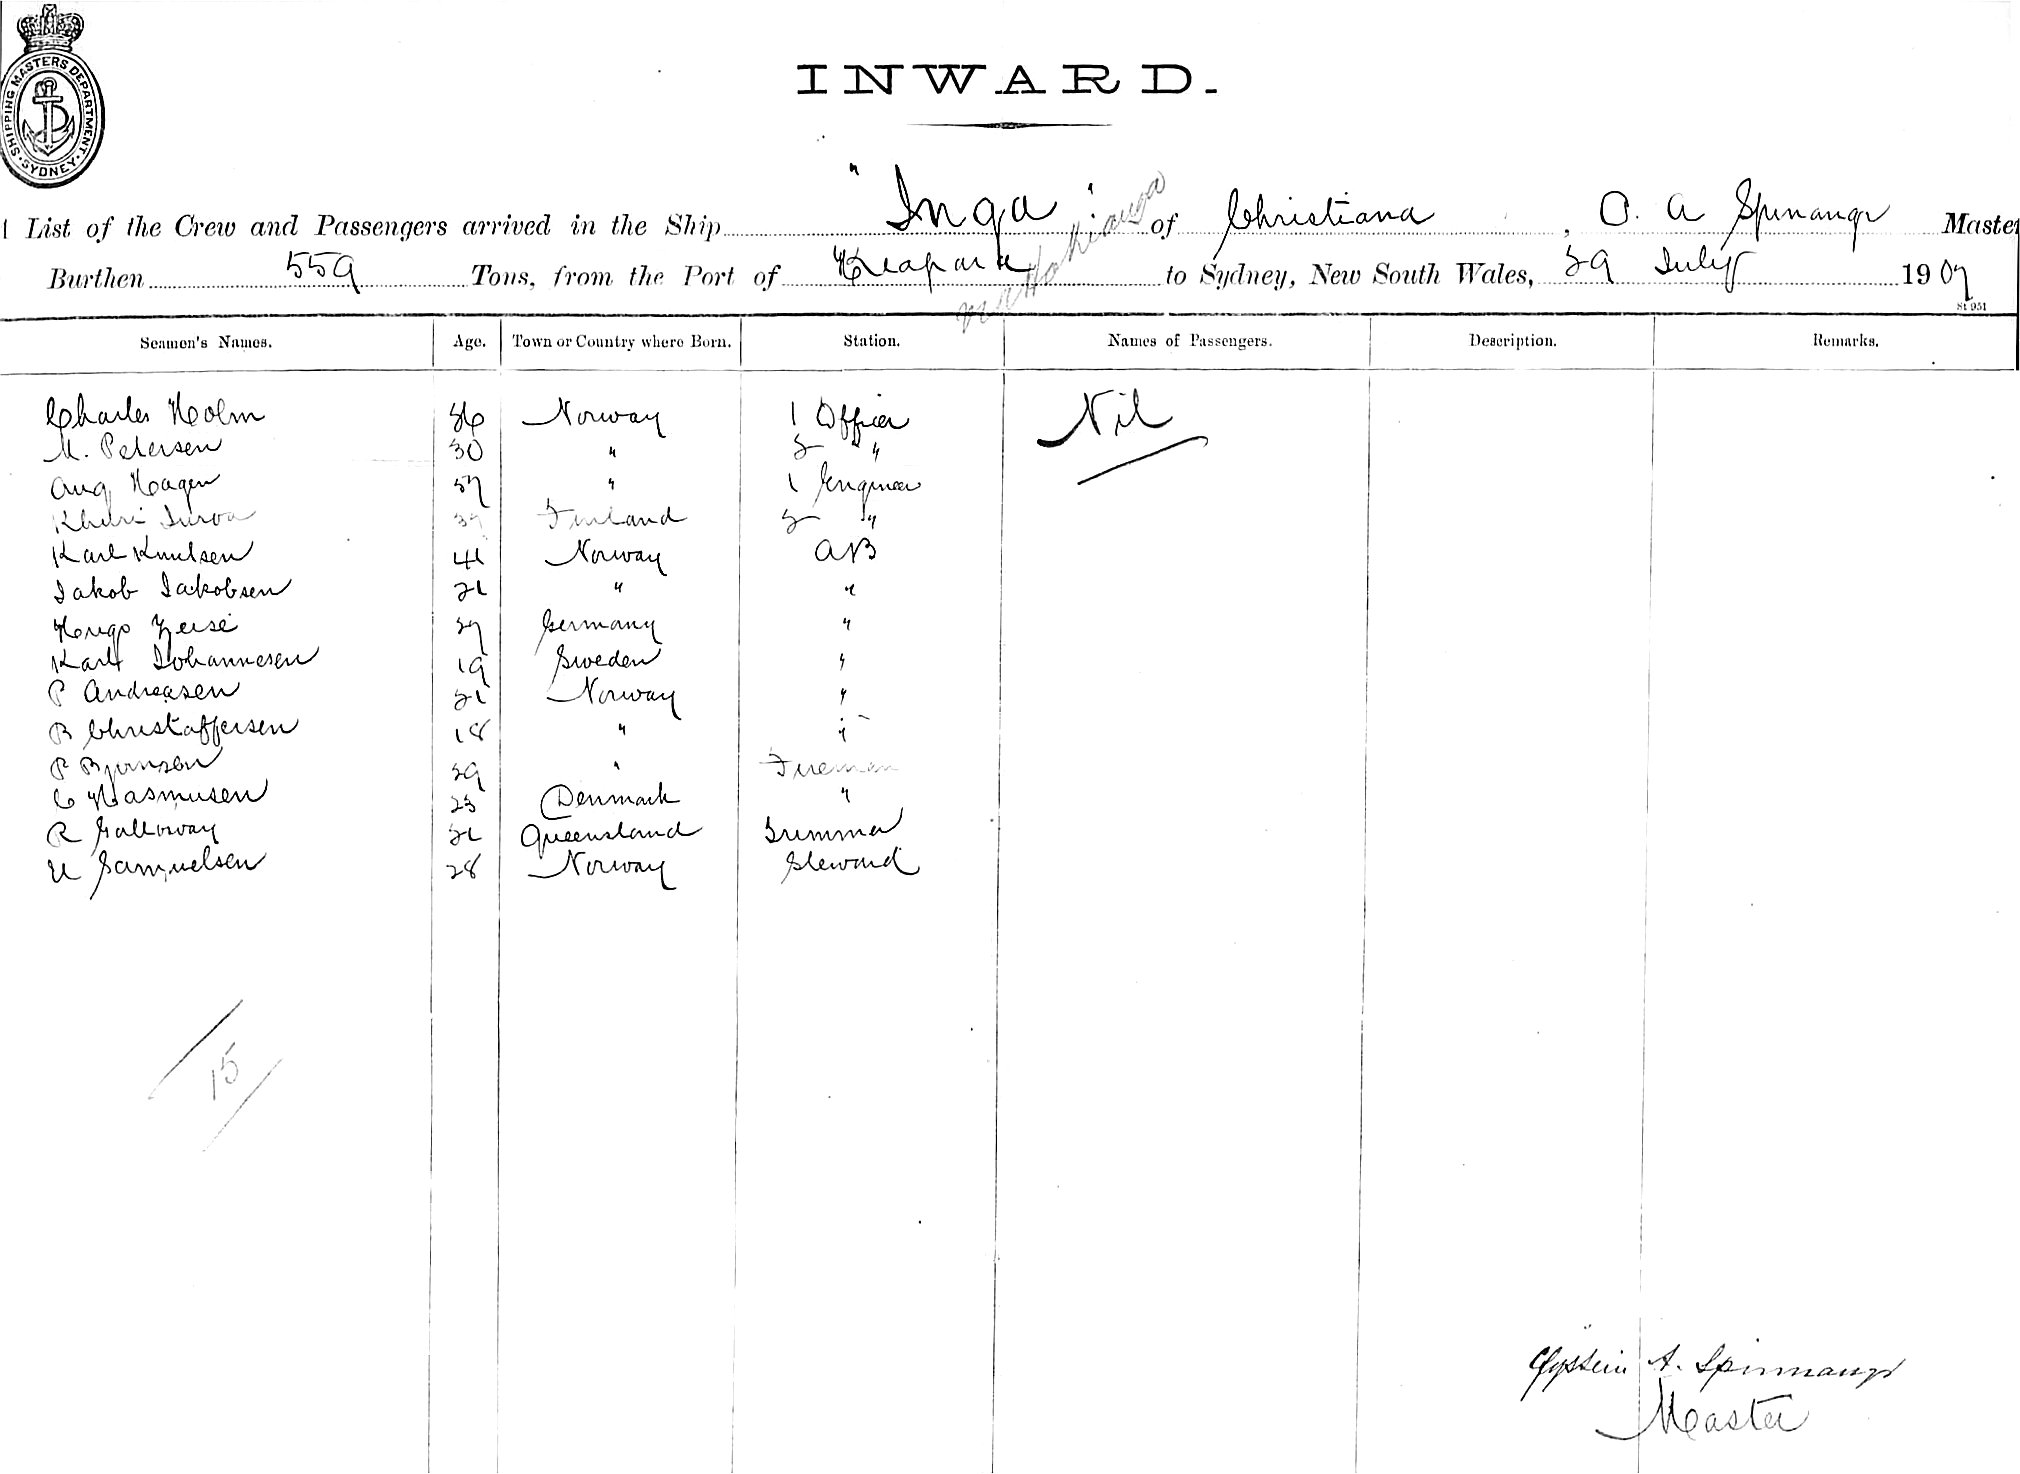 SHIPPING MASTERS DEPARTMENT. SYDNEY
INWARD.
List of the Crew and Passengers arrived in the Ship "Inga" of Christiana, O. A Spinangr Master
Burthen 559 Tons, from the Port of to Sydney, New South Wales, 29 July 1907
St 951
Seamen's Names. Age. Town or Country where Born. Station. Names of Passengers. Description. Remarks.
Charles Holm 36 Norway 1 Officer Nil
M. Petersen 30 " 2 "
Aug Hagen 37 " 1 Engineer
Finland 2 "
Karl Knutsen 41 Norway AB
Jakob Jakobsen 21 " "
Hugo Zeise 27 Germany "
Karl Johannesen 19 Sweden "
P Andreasen 21 Norway "
B Christoffersen 18 " "
P Bjornsen 29 " Fireman
C Rasmusen 23 Denmark "
R Galloway 21 Queensland Trimmer
U Samuelsen 28 Norway Steward
15
Oystein A. Spinnangr
Master